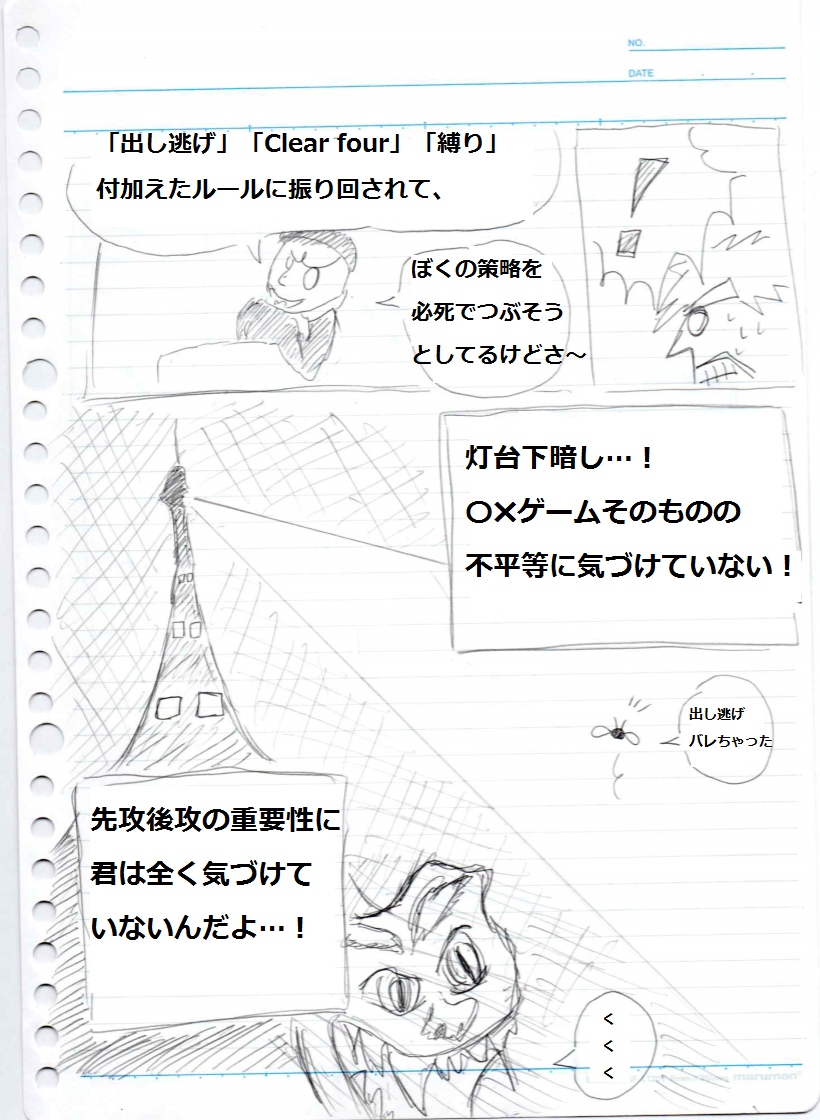 NO.
DATE
「出し逃げ」「Clear four」「縛り」
付加えたルールに振り回されて、
ぼくの策略を
必死でつぶそう
としてるけどさ～
灯台下暗し…！
〇×ゲームそのものの
不平等に気づけていない！
出し逃げ
バレちゃった
先攻後攻の重要性に
君は全く気づけて
いないんだよ…！
く
く
く
maruman